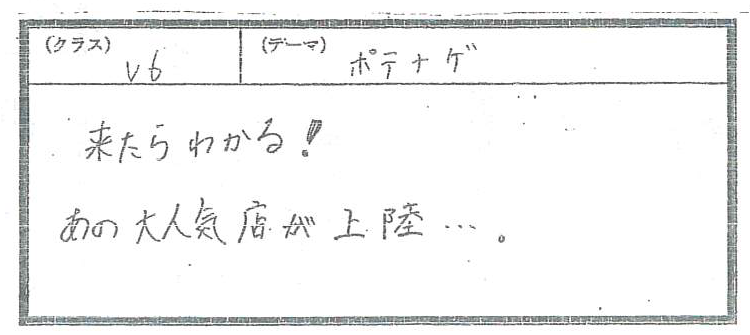 (クラス) V6 (テーマ) ポテナゲ
来たらわかる!
あの大人気店が上陸…。